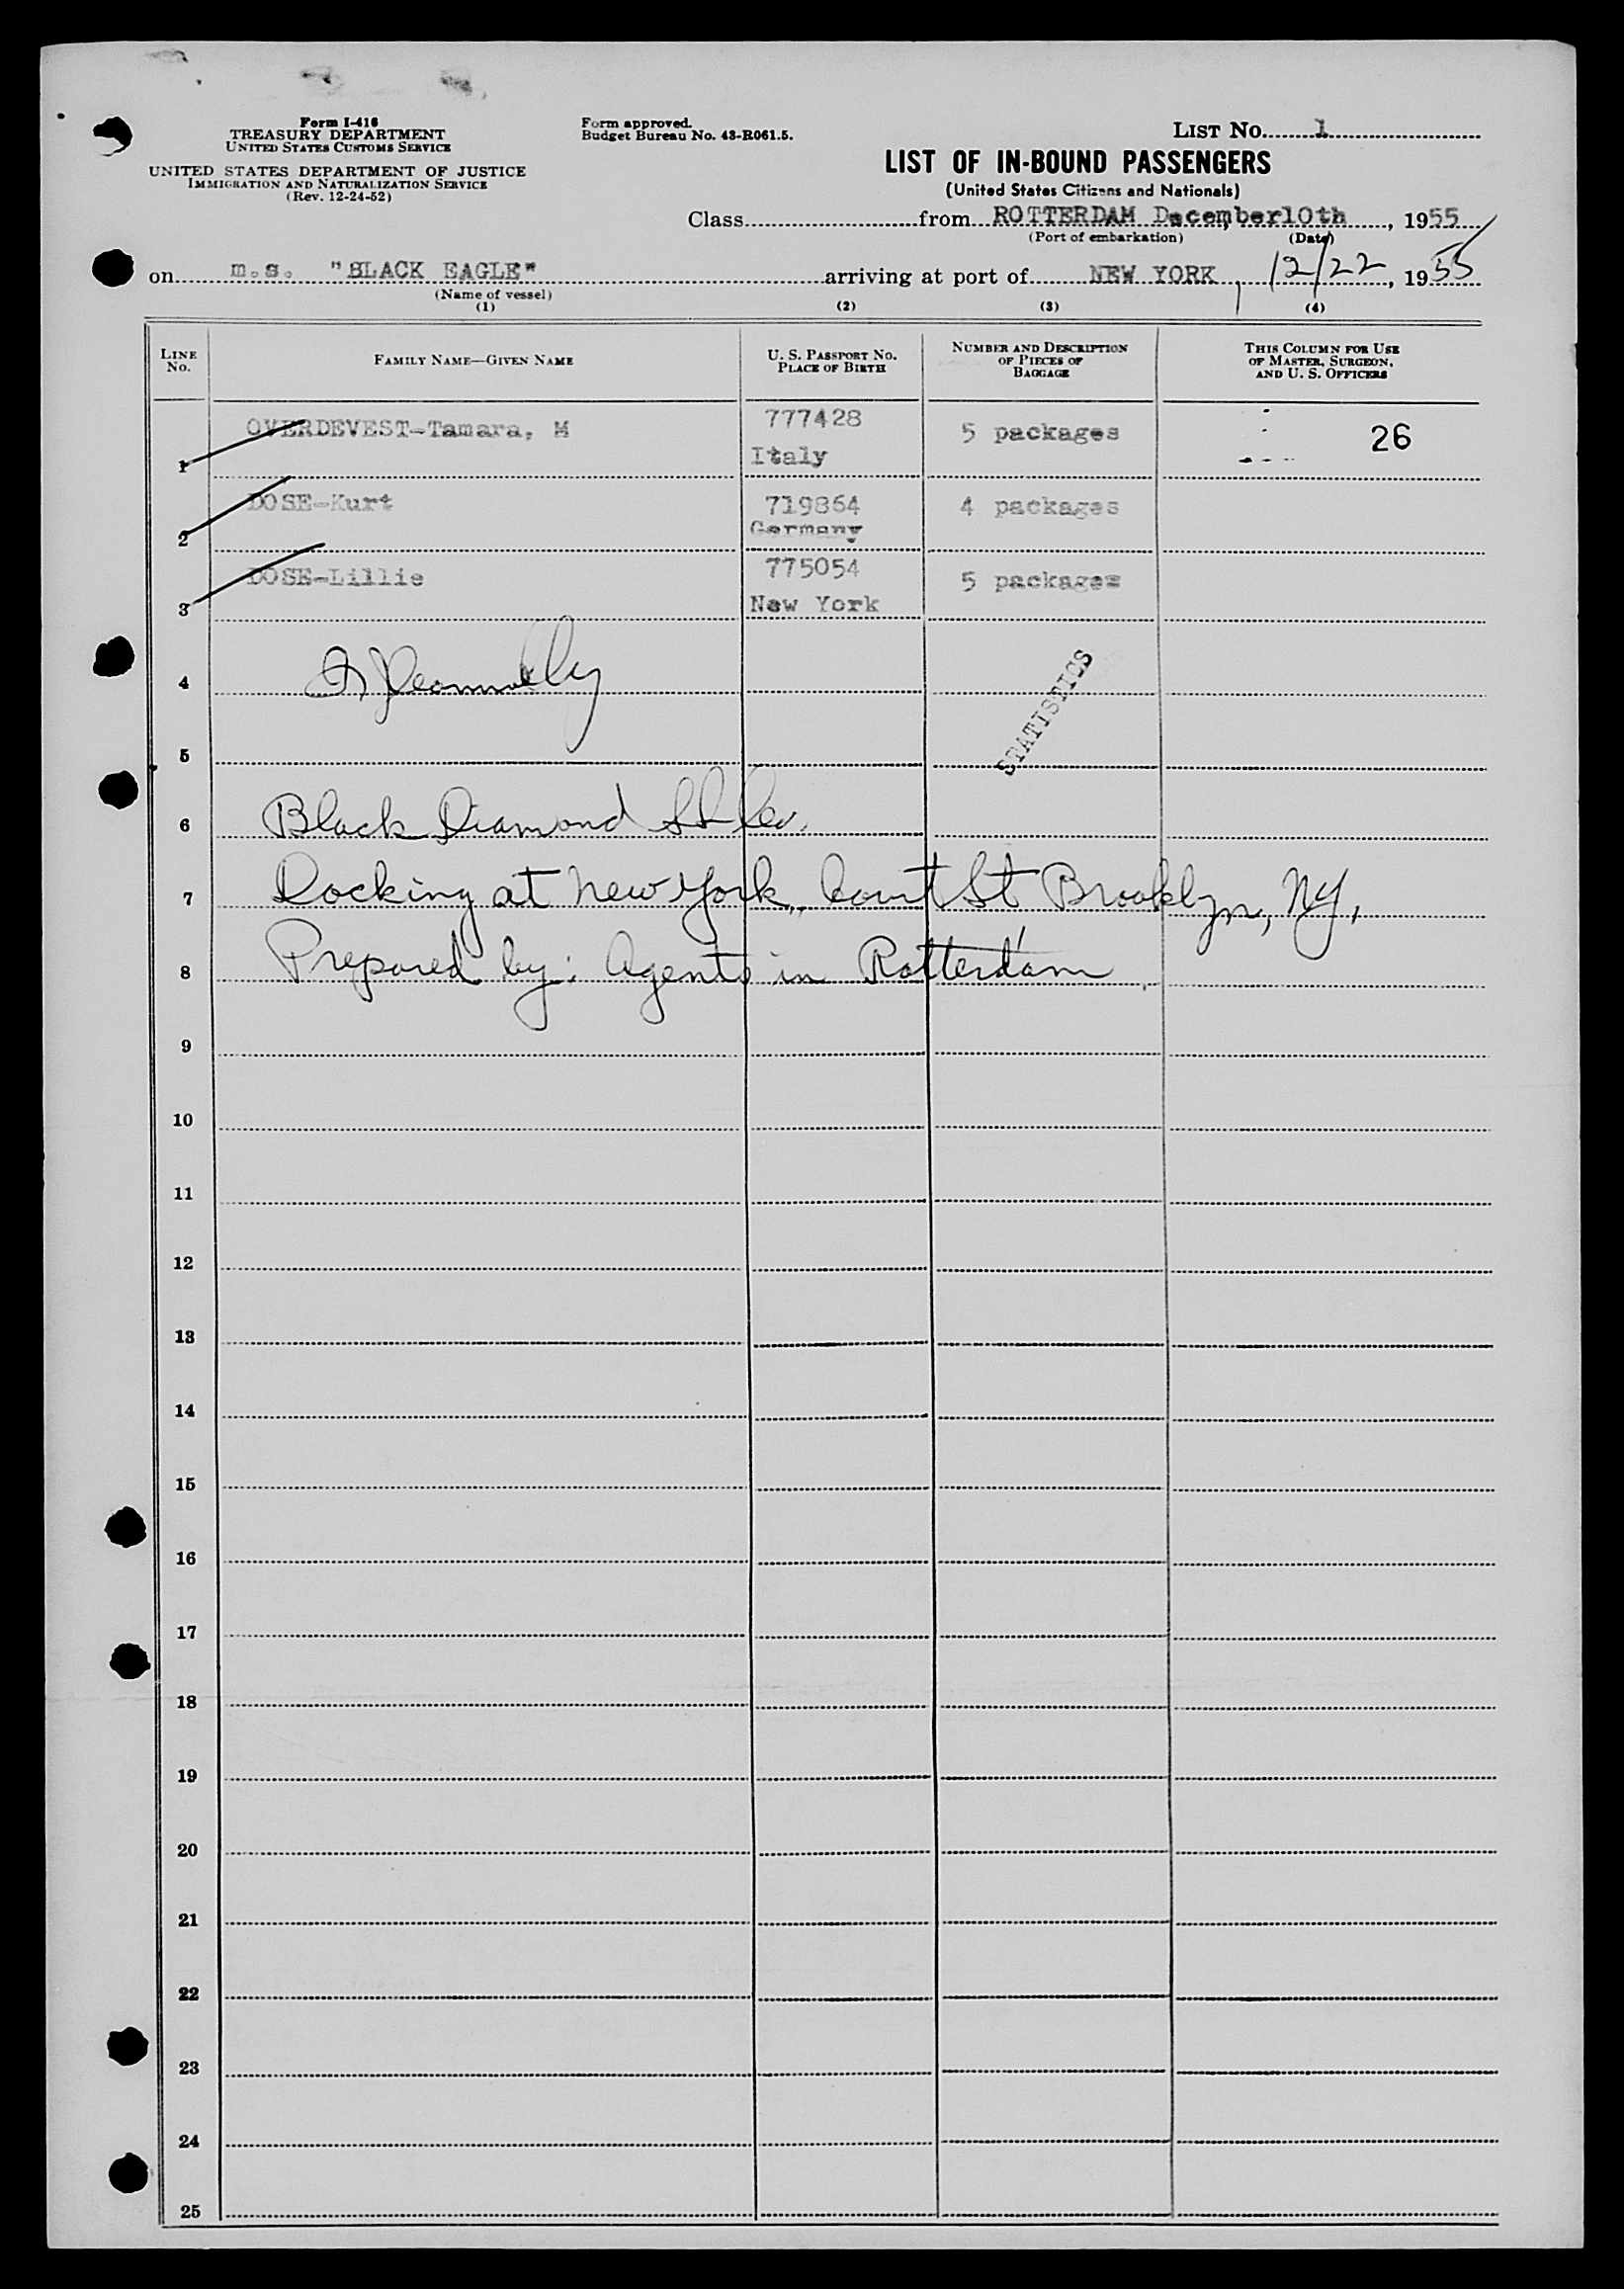 Form I-418
TREASURY DEPARTMENT
UNITED STATES CUSTOMS SERVICE
UNITED STATES DEPARTMENT OF JUSTICE
IMMIGRATION AND NATURALIZATION SERVICE
(Rev. 12-24-52)
Form approved.
Budget Bureau No. 43-R061.5.
LIST NO. 1
LIST OF IN-BOUND PASSENGERS
(United States Citizens and Nationals)
Class from ROTTERDAM December 10th, 1955
(Port of embarkation) (Date)
on m.s. "BLACK EAGLE" arriving at port of NEW YORK, 12/22, 1955
(Name of vessel)
(1) (2) (3) (4)
LINE NO. FAMILY NAME—GIVEN NAME U. S. PASSPORT NO. PLACE OF BIRTH NUMBER AND DESCRIPTION OF PIECES OF BAGGAGE THIS COLUMN FOR USE OF MASTER, SURGEON, AND U. S. OFFICERS
1 OVERDEVEST-Tamara, M 777428 Italy 5 packages 26
2 DOSE-Kurt 719864 Germany 4 packages
3 DOSE-Lillie 775054 New York 5 packages
4
STATISTICS
5
6 Black Diamond
7 Docking at New York, Court St Brooklyn, NY,
8 Prepared by: Agents in Rotterdam
9
10
11
12
13
14
15
16
17
18
19
20
21
22
23
24
25